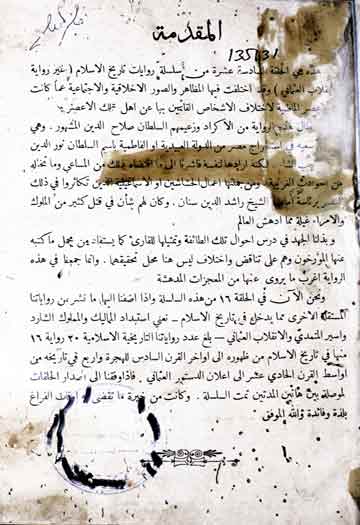 المقدمة
135131
هي الحلقة السادسة عشرة من سلسلة روايات تاريخ الاسلام ( غير رواية
العثماني ) وقد اختلفت فيها المظاهر والصور الاخلاقية والاجتماعية عما كانت
الماضية لاختلاف الاشخاص القائمين بها عن اهل تلك الاعصر
رواية من الاكراد وزعيمهم السلطان صلاح الدين المشهور . وهي
مصر من الدولة العبيدية او الفاطمية باسم السلطان نور الدين
لكنه ارادها لنفسه من المساعي وما تخلله
من الحوادث الغريبة . ومن جملتها اعمال الحشاشين او الاسماعيلية الذين تكاثروا في ذلك
العصر برئاسة الشيخ راشد الدين سنان . وكان لهم شأن في قتل كثير من الملوك
والامراء غيلة مما ادهش العالم
و بذلنا الجهد في درس احوال تلك الطائفة وتمثيلها للقارئ كما يستفاد من مجمل ما كتبه
عنها المؤرخون وهم على تناقض واختلاف ليس هنا محل تحقيقهما . وانما جمعنا في هذه
الرواية اغرب ما يروى عنها من المعجزات المدهشة
ونحن الآن في الحلقة ١٦ من هذه السلسلة واذا اضفنا اليها ما نشر من رواياتنا
الاخرى مما يدخل في تاريخ الاسلام — نعني استبداد المماليك والمملوك الشارد
واسير المتمهدي والانقلاب العثماني — بلغ عدد رواياتنا التاريخية الاسلامية ٢٠ رواية ١٦
منها في تاريخ الاسلام من ظهوره الى اواخر القرن السادس للهجرة واربع في تاريخه من
اواسط القرن الحادي عشر الى اعلان الدستور العثماني . فاذا وفقنا الى اصدار الحلقات
الموصلة بين هاتين المدتين تمت السلسلة . وكانت من خيرة ما تقضى به اوقات الفراغ
بلذة وفائدة والله الموفق